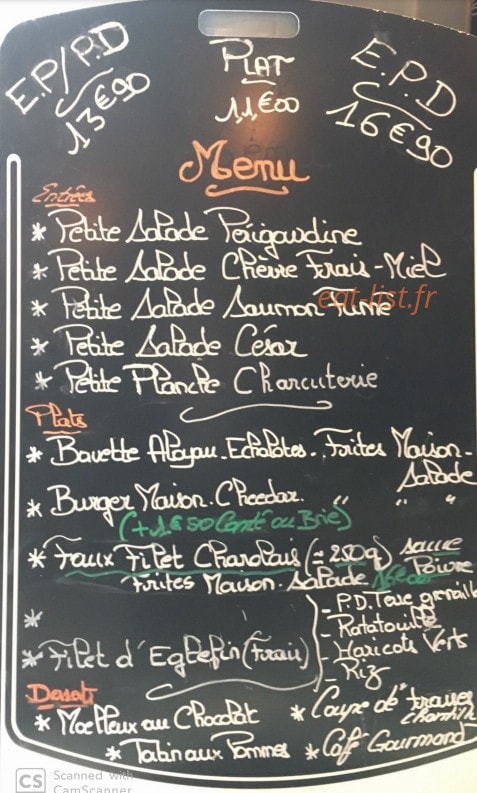 E.P/P.D
13€90
PLAT
11€00
E.P.D
16€90
Menu
Entrées
* Petite Salade Périgourdine
* Petite Salade Chèvre Frais - Miel
* Petite Salade Saumon Fumé
eat-list.fr
* Petite Salade César
* Petite Planche Charcuterie
Plats
* Bavette Aloyau. Echalotes. Frites Maison - Salade
* Burger Maison. Cheedar. " " "
(+1€50 Comté ou Brie)
* Faux Filet Charolais (≈ 250g) sauce Poivre
Frites Maison. Salade 16€00
*
* Filet d'Eglefin (Frais)
- P.D. Terre grenaille
- Ratatouille
- Haricots Verts
- Riz
Desserts
* Moelleux au Chocolat
* Coupe de Fraises chantilly
* Tatin aux Pommes
* Café Gourmand
CS Scanned with
CamScanner